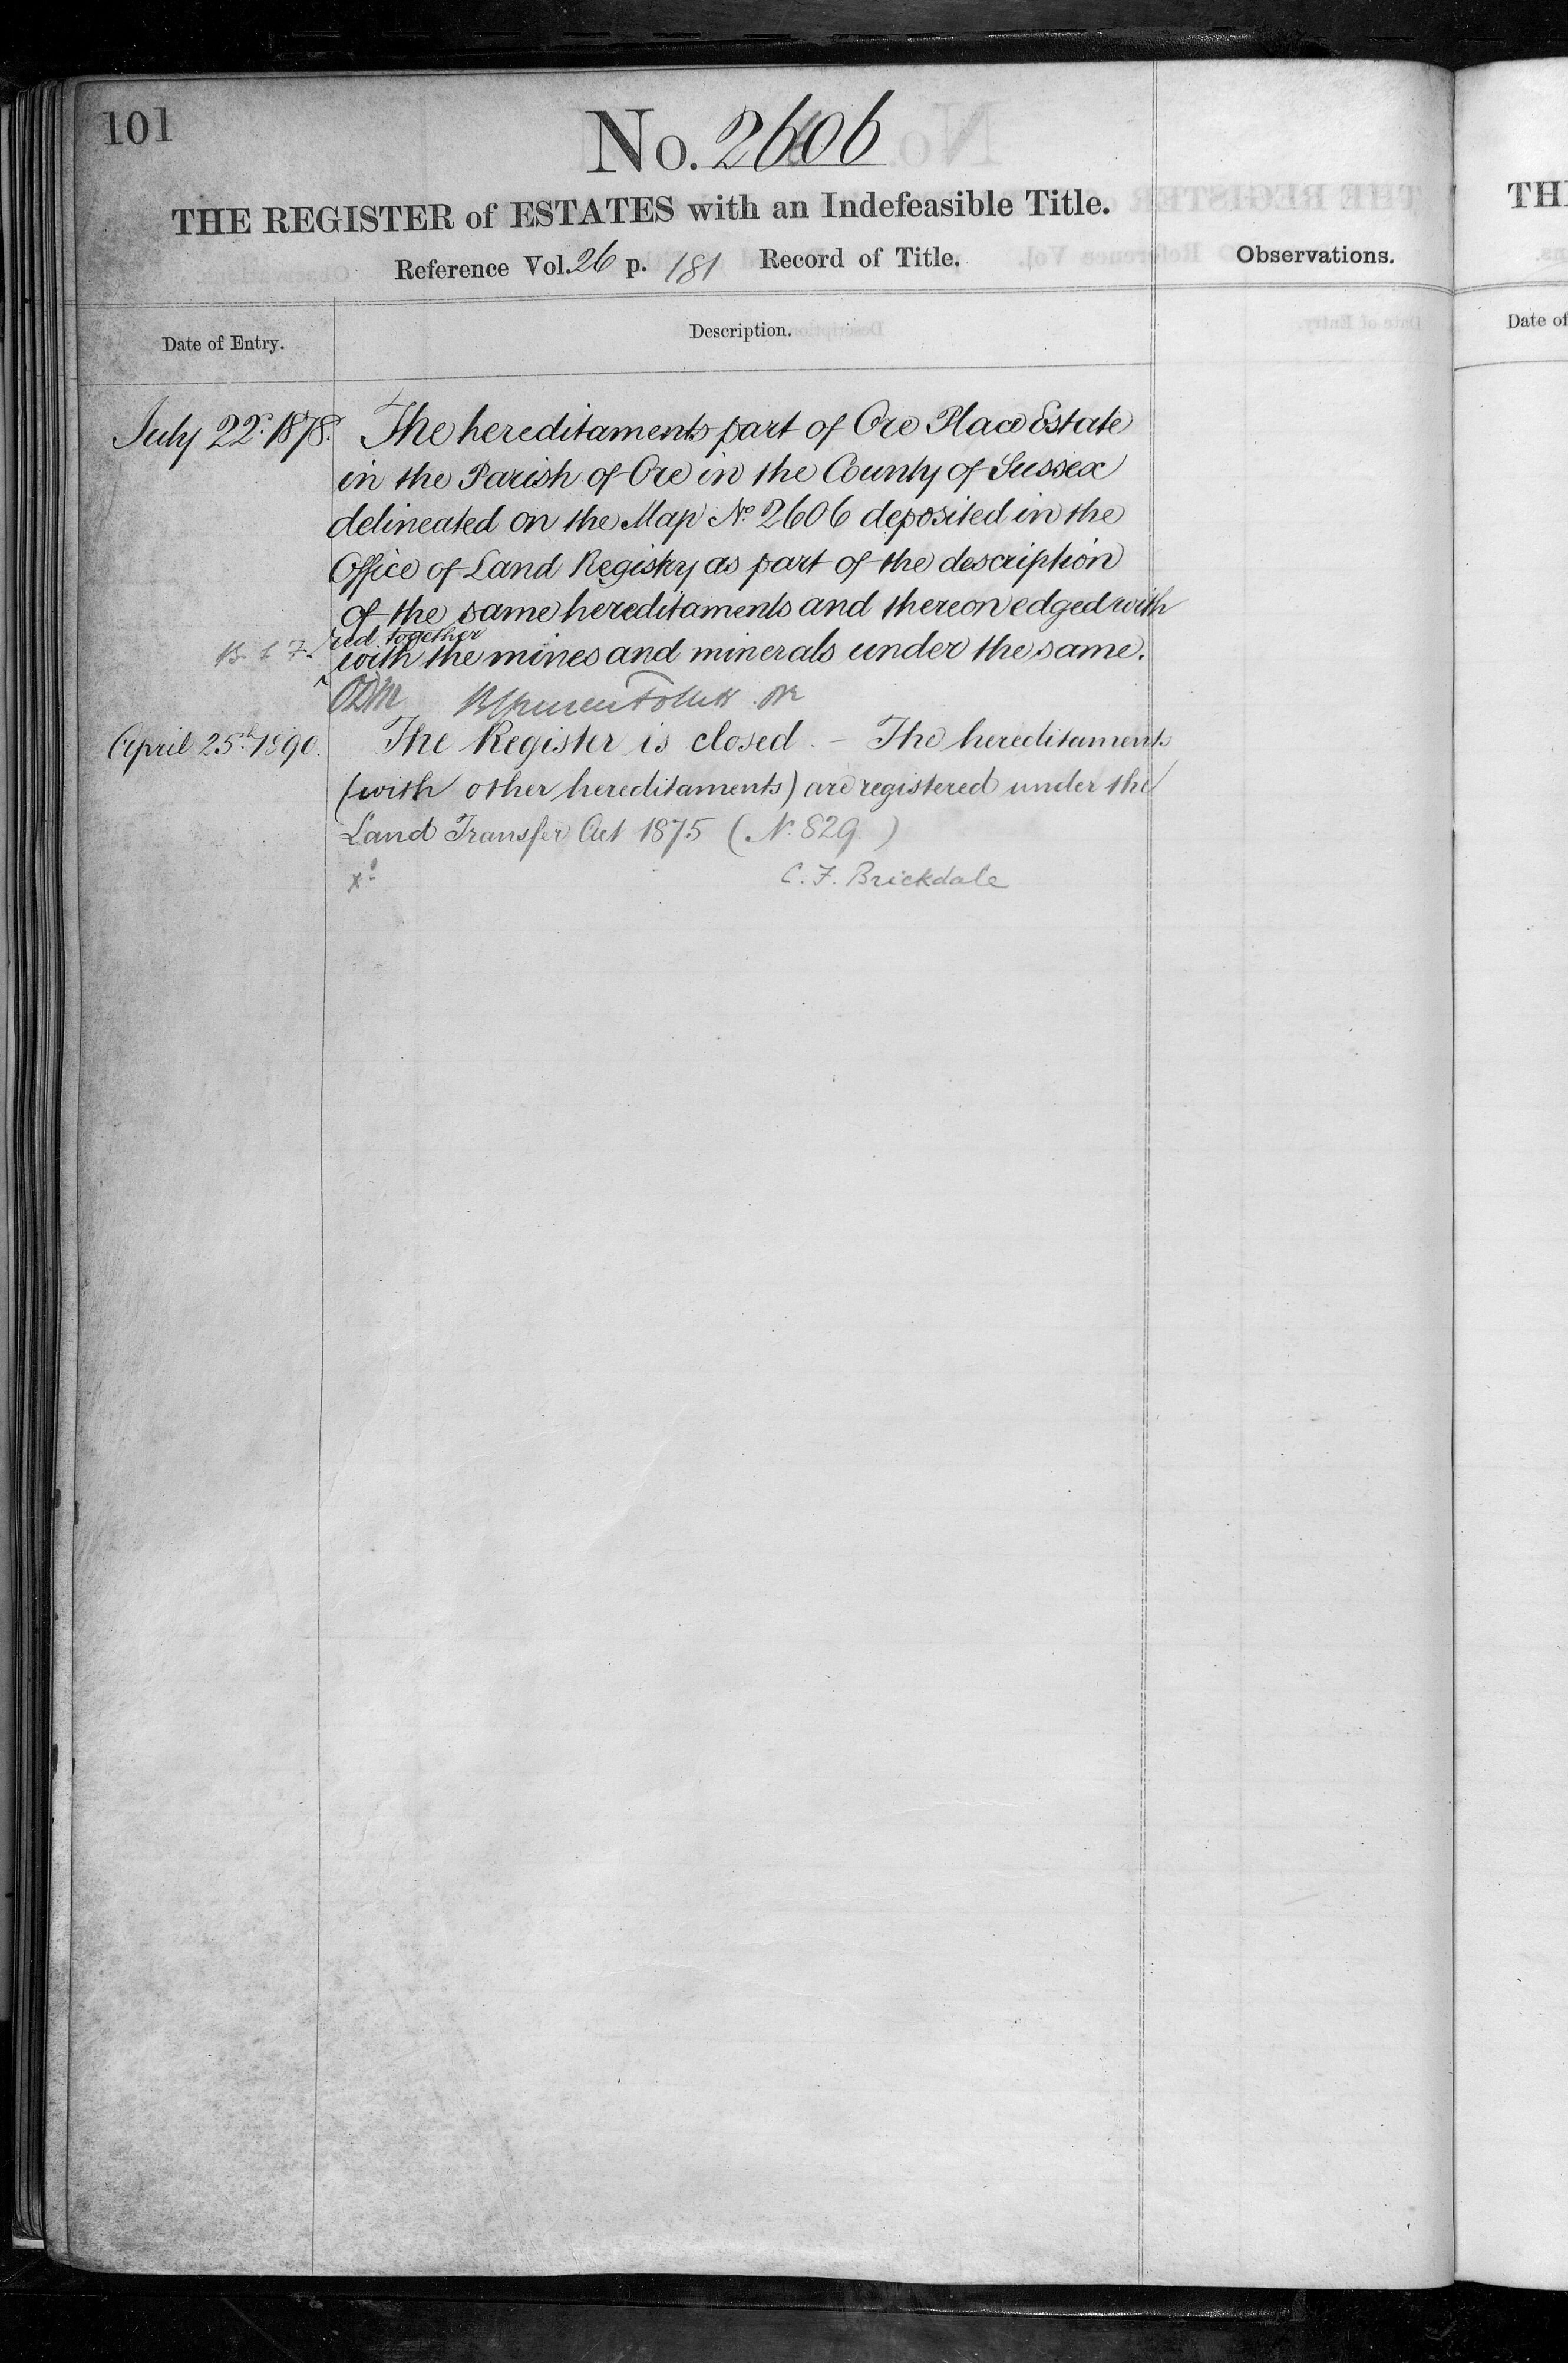 101
No. 2606
THE REGISTER of ESTATES with an Indefeasible Title.
Reference Vol. 26 p. 181 Record of Title.
Observations.
Date of Entry.
Description.
July 22. 1878. The hereditaments part of Ore Place Estate
in the Parish of Ore in the County of Sussex
delineated on the Map No. 2606 deposited in the
Office of Land Registry as part of the description
of the same hereditaments and thereon edged with
red together
with the mines and minerals under the same.
April 25th 1890. The Register is closed. – The hereditaments
(with other hereditaments) are registered under the
Land Transfer Act 1875 (No. 829)
C. F. Brickdale
TH
Date of